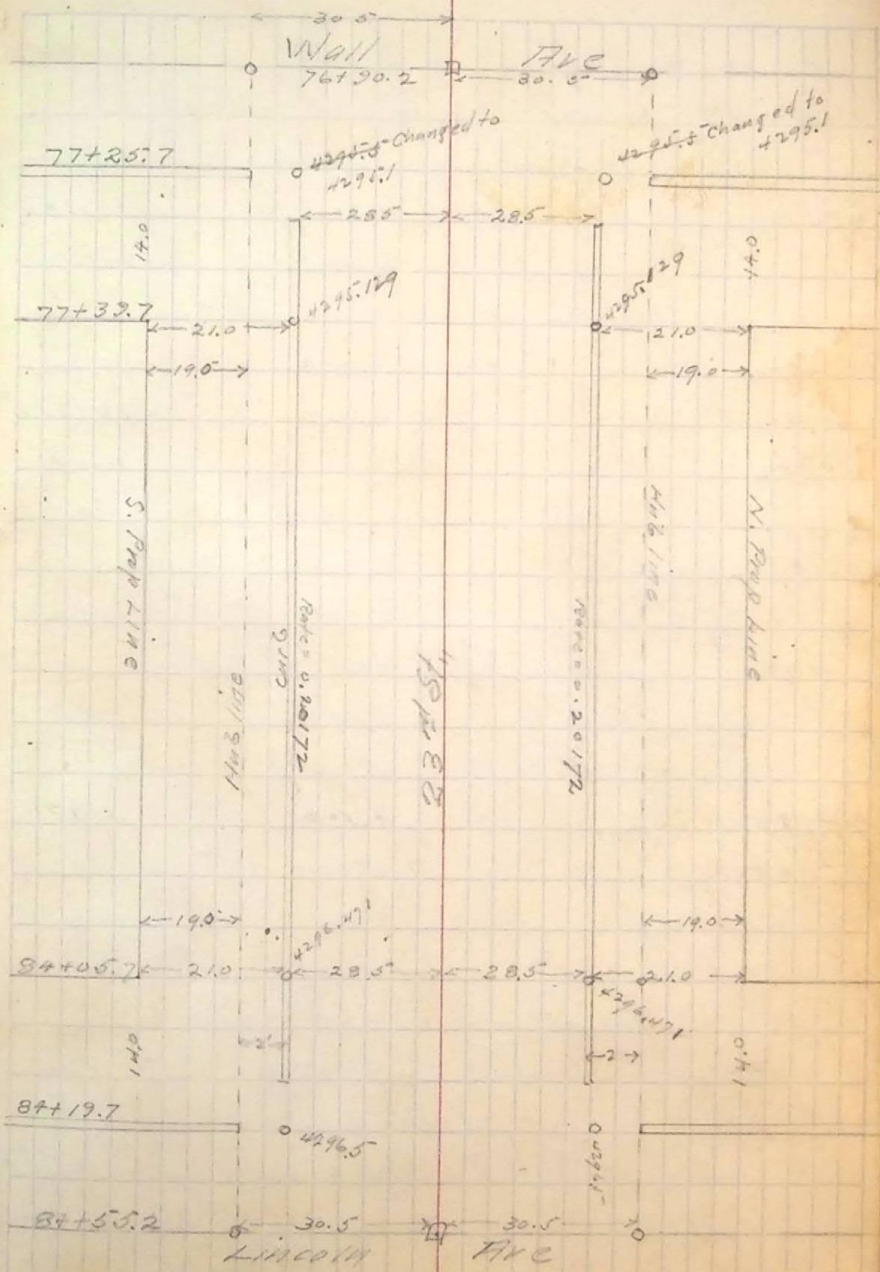 30.5
Wall Ave
76+90.2 30.5
4295.5 Changed to
4295.1
4295.5 Changed to
4295.1
77+25.7
28.5 28.5
14.0 14.0
4295.129 4295.129
77+39.7
21.0 21.0
19.0 19.0
S. Prop Line
Hub line
Curb
Rate = 0.20172
23rd St.
Rate = 0.20172
Hub line
N. Prop Line
19.0 19.0
4296.471
84+05.7 21.0 28.5 28.5 21.0
4296.471
2 2
14.0 14.0
84+19.7
4296.5 4296.5
84+55.2 30.5 30.5
Lincoln Ave